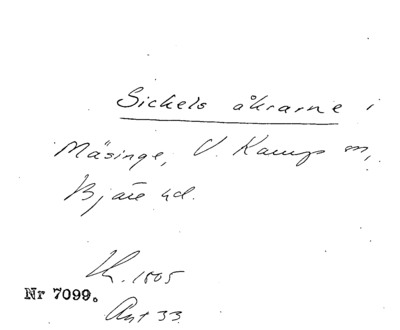 Sickels åkrarne i
Mäsinge, V. Karups sn,
Bjäre hd.
Lh. 1805
Nr 7099.
Akt 33